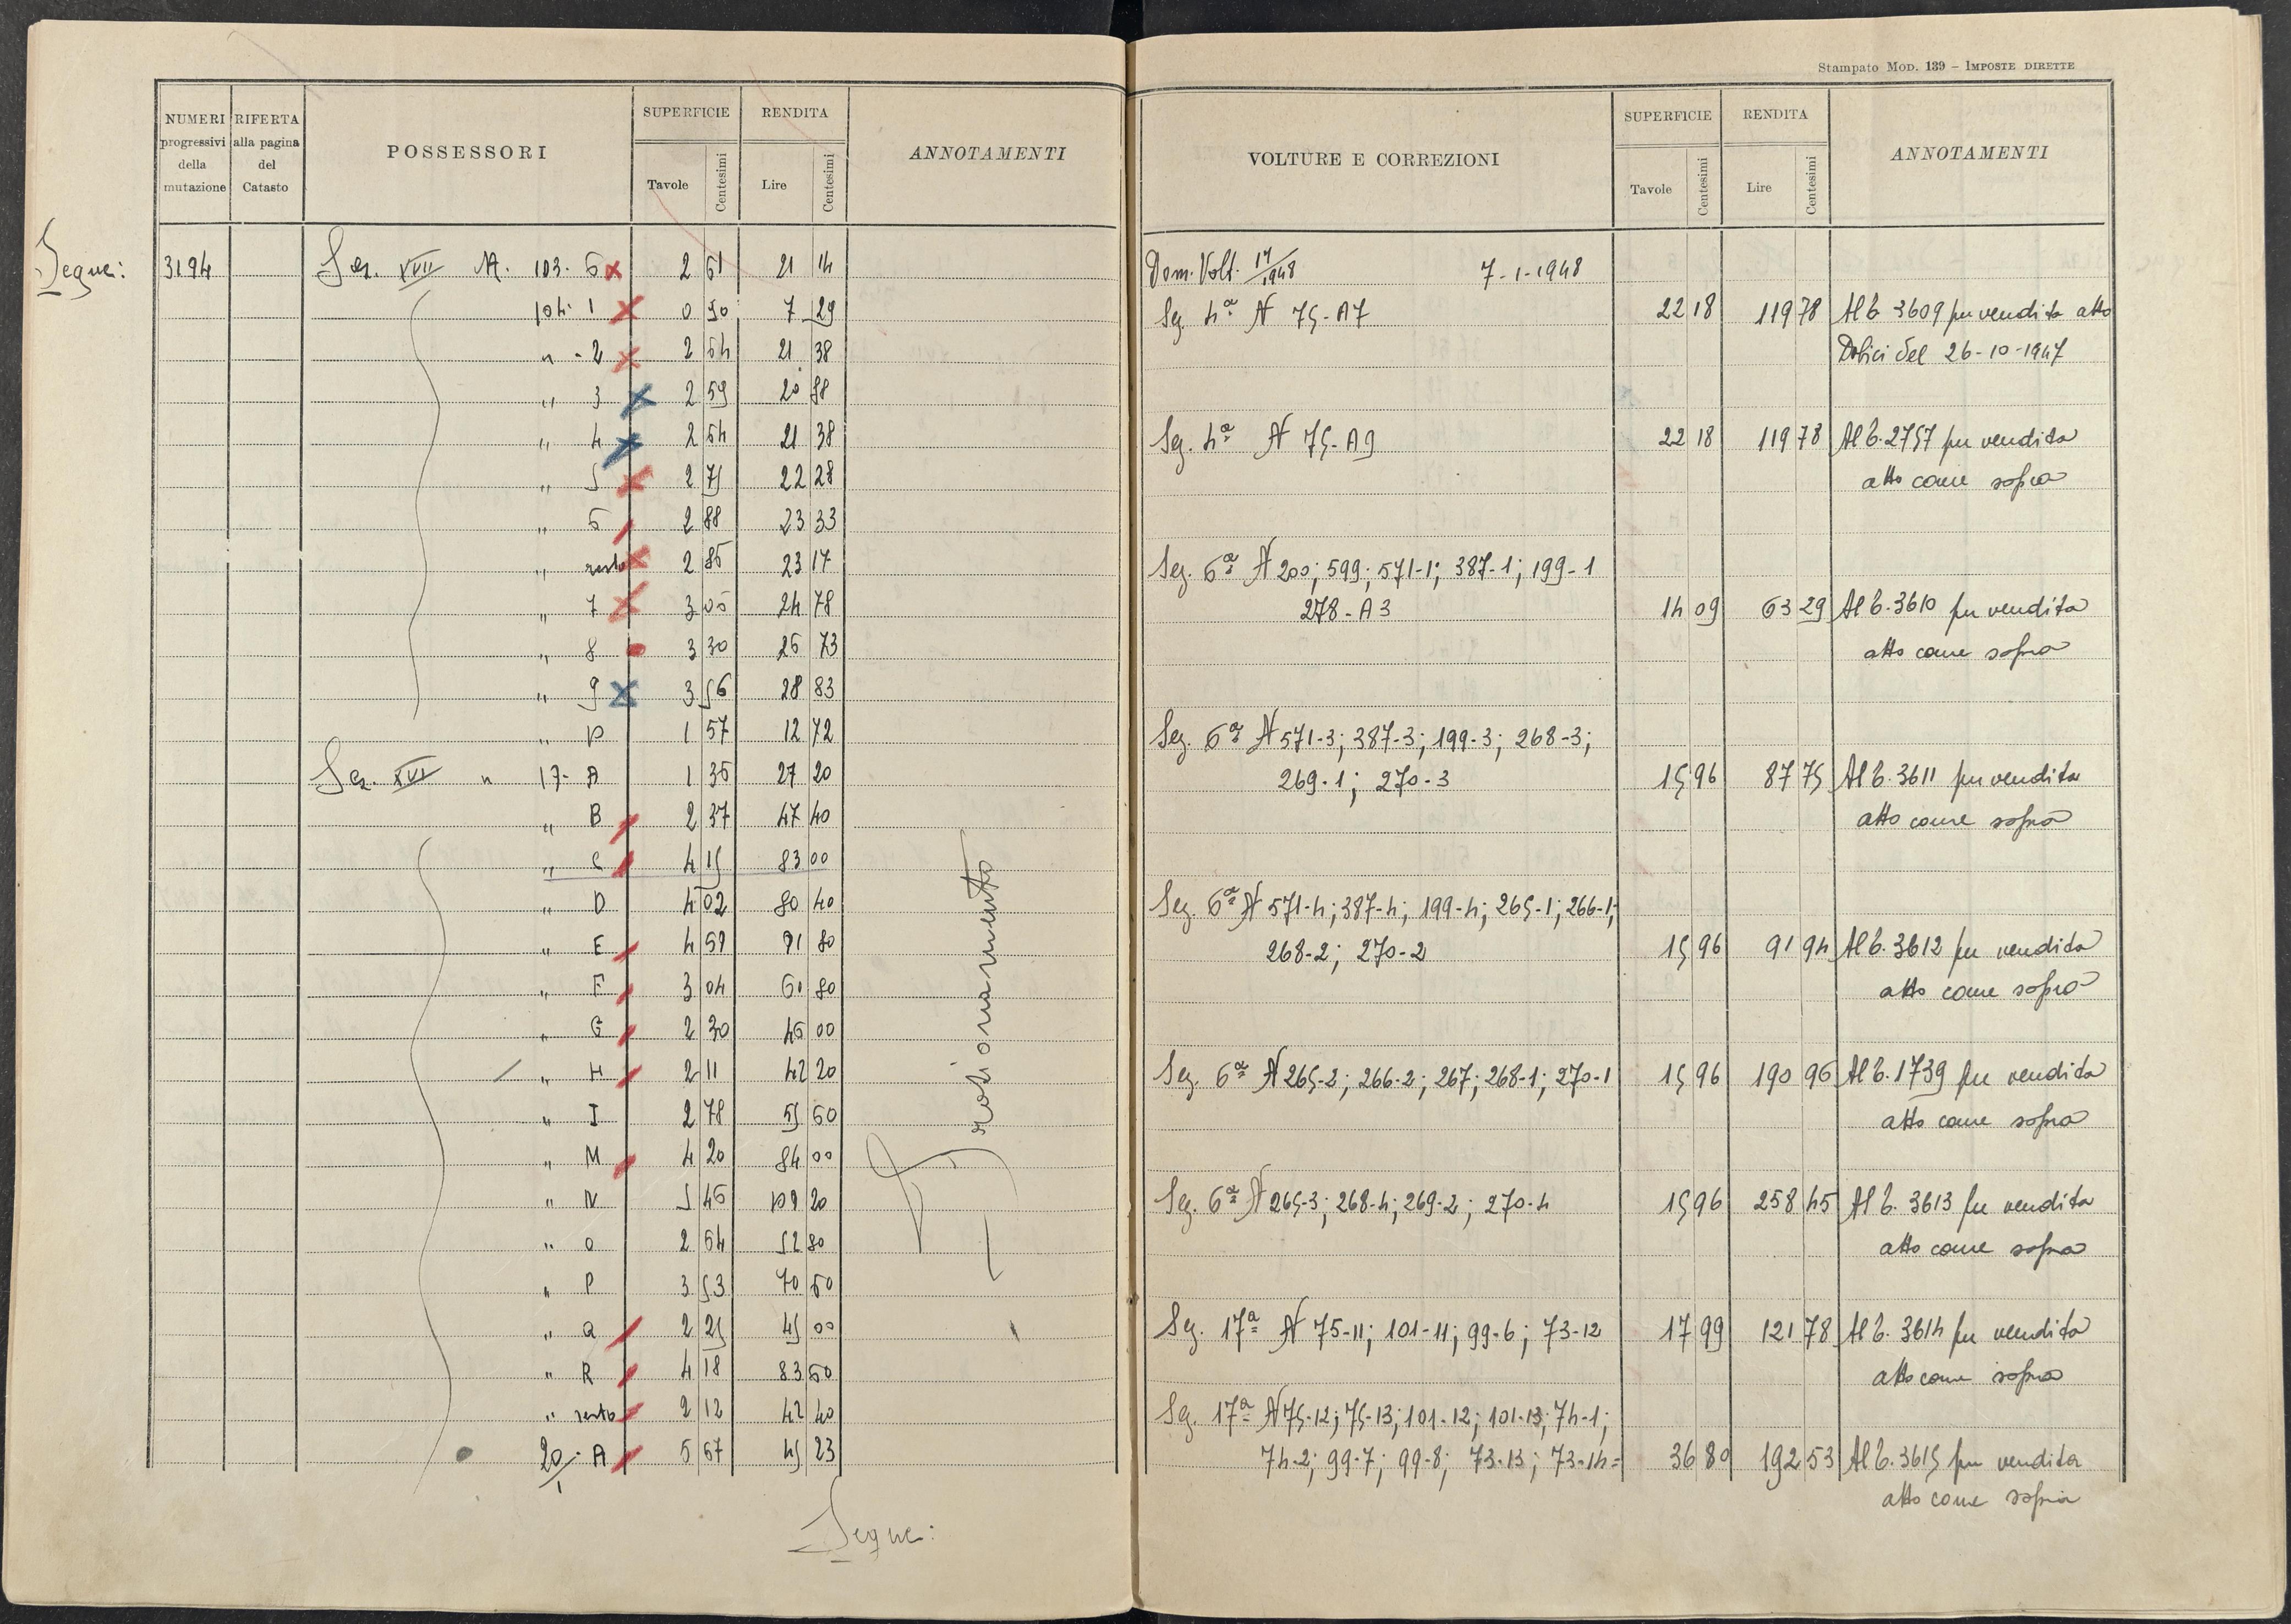 Stampato MOD. 139 – IMPOSTE DIRETTE
NUMERI progressivi della mutazione
RIFERTA alla pagina del Catasto
POSSESSORI
SUPERFICIE
Tavole
Centesimi
RENDITA
Lire
Centesimi
ANNOTAMENTI
Segue: 3194 Sez. XVII N. 103. 6 2 61 21 14
104. 1 0 90 7 29
" - 2 2 64 21 38
" 3 2 59 20 98
" 4 2 64 21 38
" 5 2 75 22 28
" 6 2 88 23 33
" resto 2 86 23 17
" 7 3 06 24 78
" 8 3 30 26 73
" 9 3 56 28 83
" 10 1 57 12 72
Sez. XVI " 17- A 1 36 27 20
" B 2 37 47 40
" C 4 15 83 00
" D 4 02 80 40
" E 4 59 91 80
" F 3 04 60 80
" G 2 30 46 00
" H 2 11 42 20
" I 2 78 55 60
" M 4 20 84 00
" N 5 46 109 20
" O 2 64 52 80
" P 3 53 70 60
" Q 2 25 45 00
" R 4 18 83 60
" resto 2 12 42 40
20/1 - A 5 67 45 23
Frazionamento
Segue:
VOLTURE E CORREZIONI
SUPERFICIE
Tavole
Centesimi
RENDITA
Lire
Centesimi
ANNOTAMENTI
Dom. Volt. 14/1948 7-1-1948
Sez. 4ª N 75-A7 22 18 119 78 Al C. 3609 per vendita atto
Dolici del 26-10-1947
Sez. 4ª N 75-A9 22 18 119 78 Al C. 2757 per vendita
atto come sopra
Sez. 6ª N 200; 599; 571-1; 387-1; 199-1
278-A3 14 09 63 29 Al C. 3610 per vendita
atto come sopra
Sez. 6ª N 571-3; 387-3; 199-3; 268-3;
269-1; 270-3 15 96 87 75 Al C. 3611 per vendita
atto come sopra
Sez. 6ª N 571-4; 387-4; 199-4; 265-1; 266-1;
268-2; 270-2 15 96 91 94 Al C. 3612 per vendita
atto come sopra
Sez. 6ª N 265-2; 266-2; 267; 268-1; 270-1 15 96 190 96 Al C. 1739 per vendita
atto come sopra
Sez. 6ª N 265-3; 268-4; 269-2; 270-4 15 96 258 45 Al C. 3613 per vendita
atto come sopra
Sez. 17ª N 75-11; 101-11; 99-6; 73-12 17 99 121 78 Al C. 3614 per vendita
atto come sopra
Sez. 17ª N 75-12; 75-13; 101-12; 101-13; 74-1;
74-2; 99-7; 99-8; 73-13; 73-14= 36 80 192 53 Al C. 3615 per vendita
atto come sopra